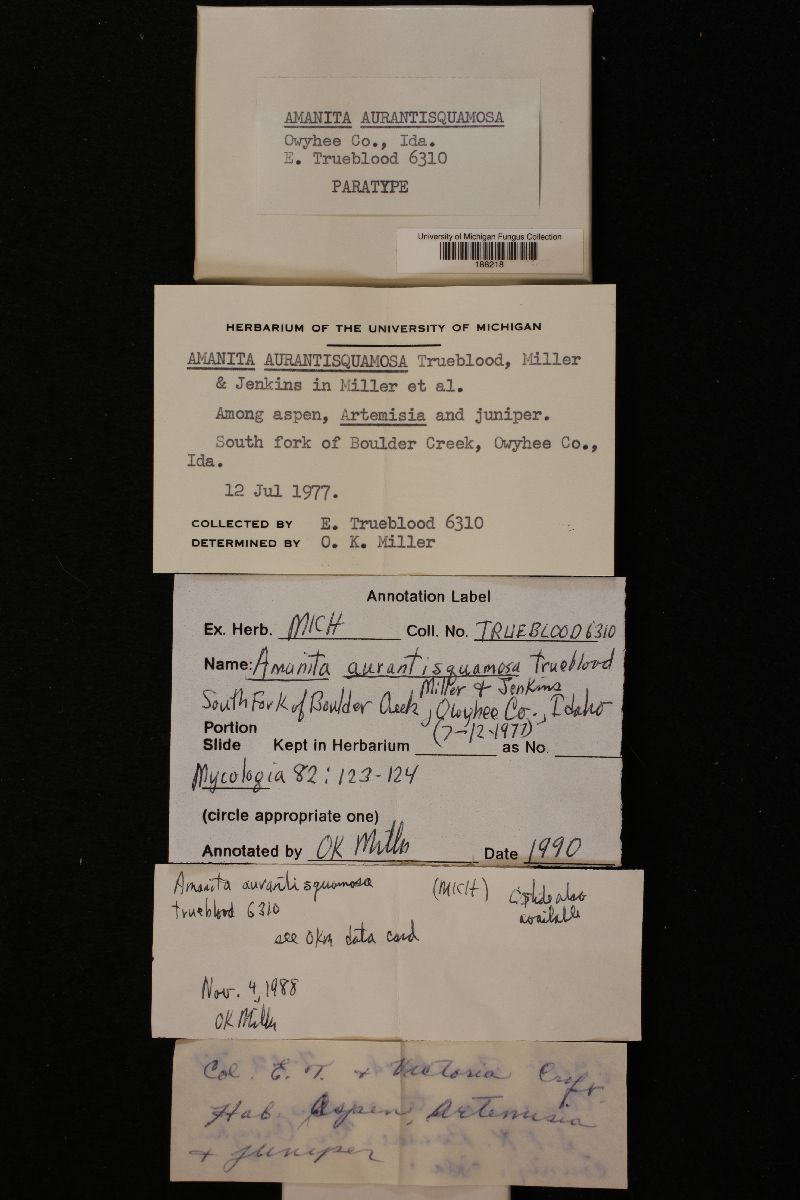 AMANITA AURANTISQUAMOSA
Owyhee Co., Ida.
E. Trueblood 6310
PARATYPE
University of Michigan Fungus Collection
188218
HERBARIUM OF THE UNIVERSITY OF MICHIGAN
AMANITA AURANTISQUAMOSA Trueblood, Miller
& Jenkins in Miller et al.
Among aspen, Artemisia and juniper.
South fork of Boulder Creek, Owyhee Co.,
Ida.
12 Jul 1977.
COLLECTED BY E. Trueblood 6310
DETERMINED BY O. K. Miller
Annotation Label
Ex. Herb. MICH Coll. No. TRUEBLOOD 6310
Name: Amanita aurantisquamosa Trueblood
Miller & Jenkins
South Fork of Boulder Creek, Owyhee Co., Idaho
Portion (7-12-1977)
Slide Kept in Herbarium as No.
Mycologia 82: 123-124
(circle appropriate one)
Annotated by OK Miller Date 1990
Amanita aurantisquamosa (MICH) also
trueblood 6310 available
see OKM data card
Nov. 4, 1988
OK Miller
Col. E. T. & Victoria
Hab. Aspen, Artemisia
& juniper